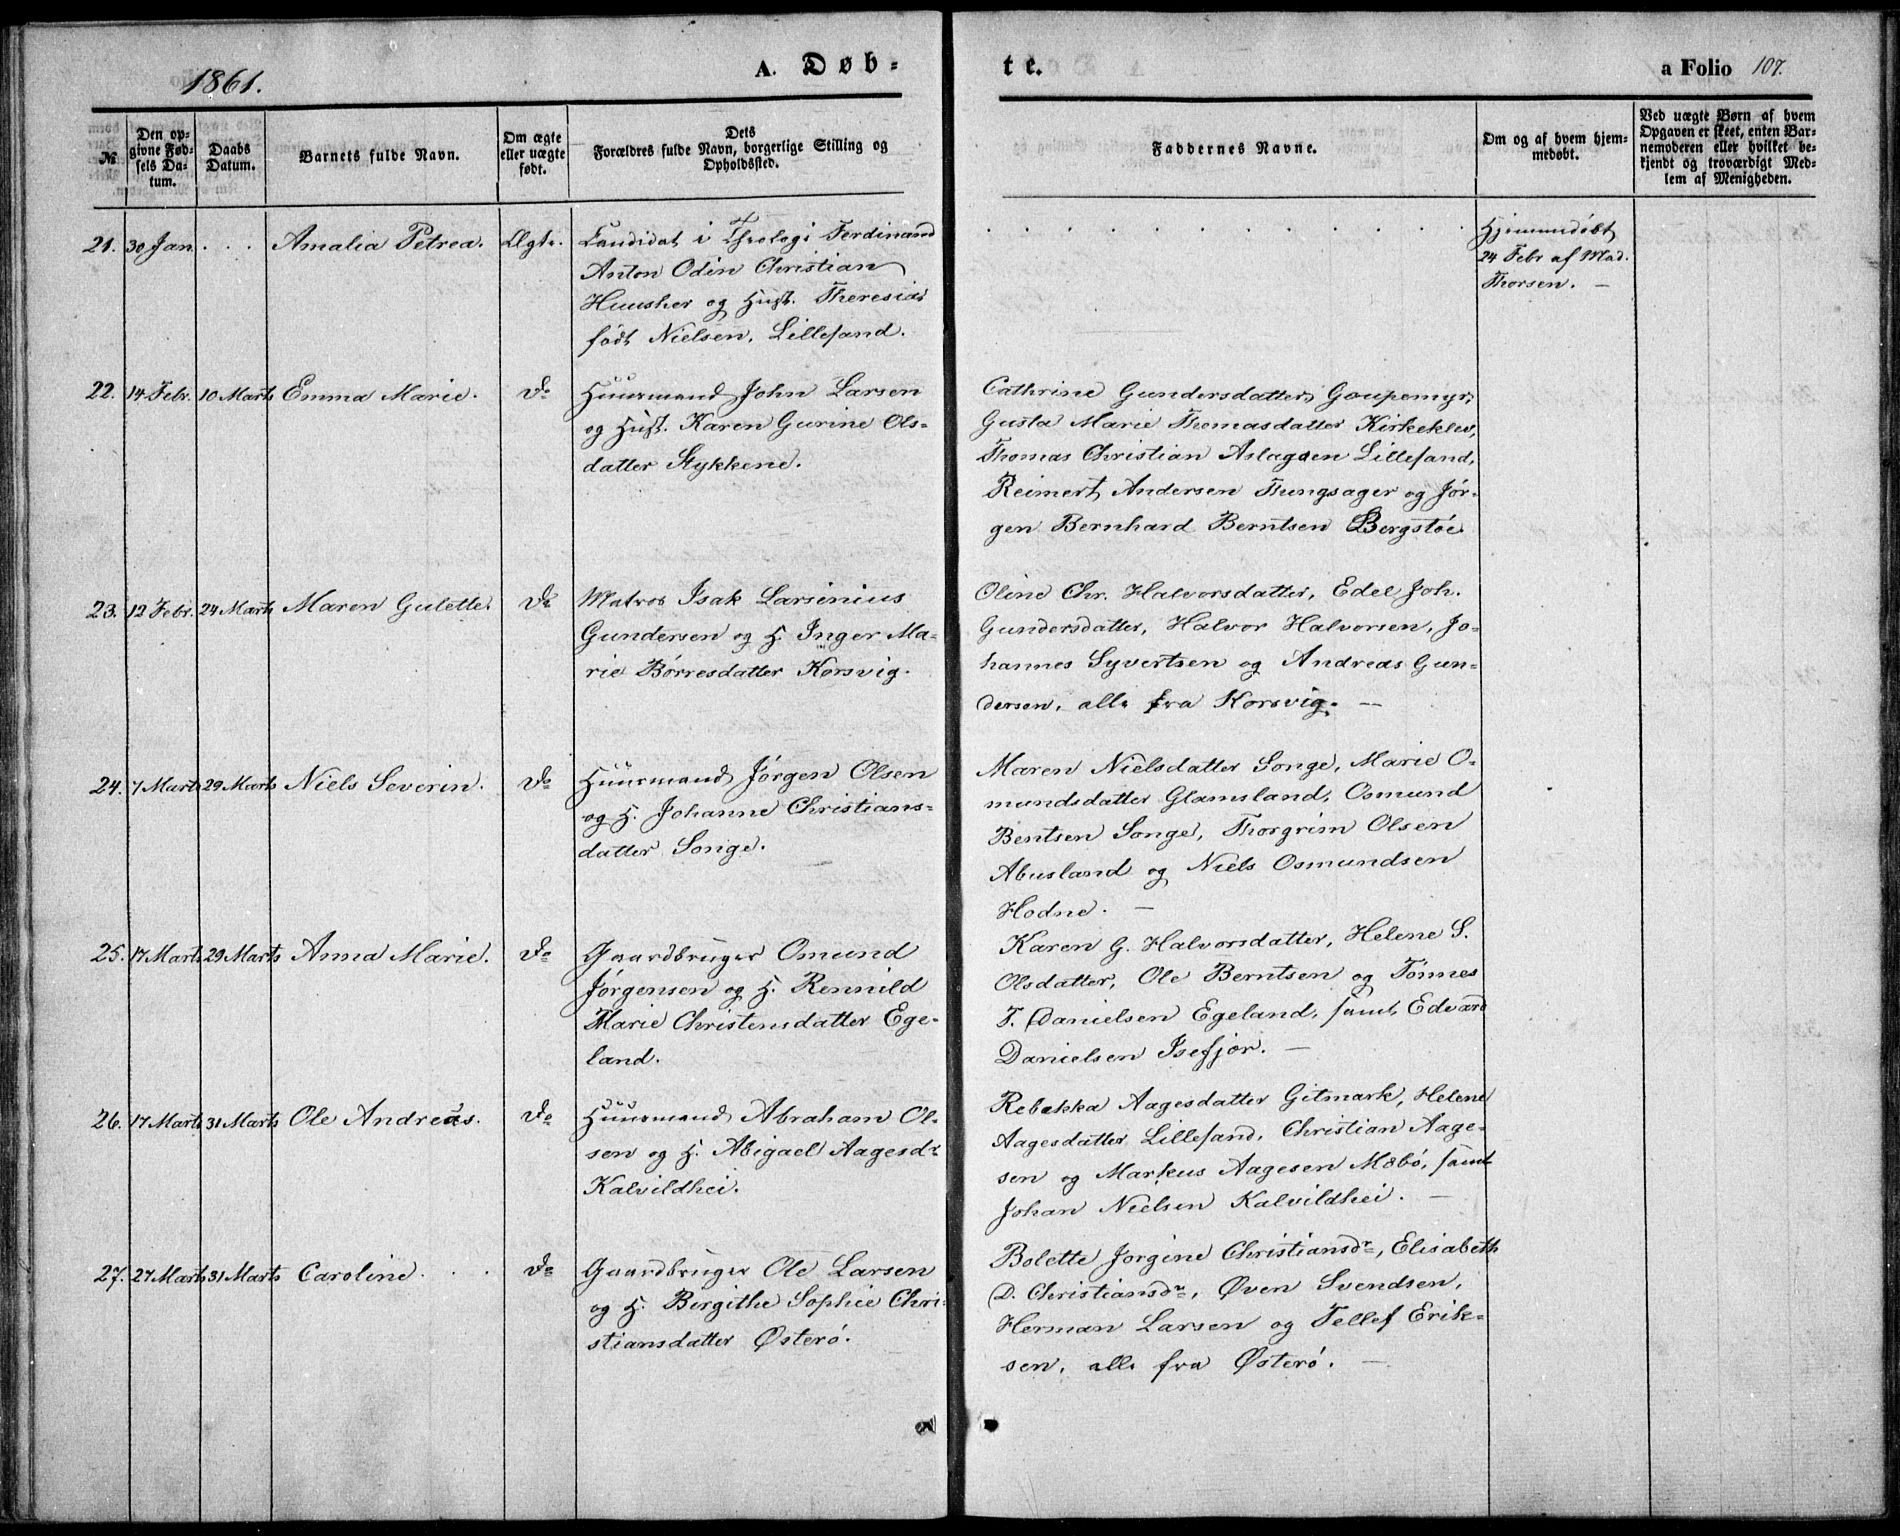 1861.
A. Døb-
te.
a Folio 107.
№
Den op-
givne Fød-
sels Da-
tum.
Daabs
Datum.
Barnets fulde Navn.
Om ægte
eller uægte
født.
Dets
Forældres fulde Navn, borgerlige Stilling og
Opholdssted.
Faddernes Navne.
Om og af hvem hjem-
medøbt.
Ved uægte Børn af hvem
Opgaven er skeet, enten Bar-
nemoderen eller hvilket be-
kjendt og troværdigt Med-
lem af Menigheden.
21. 30 Jan. . . . Amalia Petrea. Ægte.
Candidat i Theologi Ferdinand
Anton Odin Christian
Huusher og Hust. Theresia
født Nielsen, Lillesand.
Hjemmedøbt
24 Febr af Mad.
Thorsen. —
22. 14 Febr. 10 Marts Emma Marie. Do
Huusmand John Larsen
og Hust. Karen Gurine Ols-
datter Stykkene.
Cathrine Gundersdatter Goupemyr,
Gusta Marie Thomasdatter Kirkeklev,
Thomas Christian Aslagsen Lillesand,
Reimert Andersen Tungsager og Jør-
gen Bernhard Berntsen Bergstøe
23. 12 Febr. 24 Marts Maren Gulette. Do
Matros Isak Larsenius
Gundersen og H. Inger Ma-
rie Børresdatter Korsvig.
Oline Chr. Halvorsdatter, Edel Joh.
Gundersdatter, Halvor Halvorsen, Jo-
hannes Syvertsen og Andreas Gun-
dersen, alle fra Korsvig. —
24. 7 Marts 29 Marts Niels Severin. Do
Huusmand Jørgen Olsen
og H. Johanne Christians-
datter Songe.
Maren Nielsdatter Songe, Marie O-
mundsdatter Glamsland, Osmund
Bentsen Songe, Thorgrim Olsen
Abusland og Niels Osmundsen
Hodne. —
25. 17 Marts 29 Marts Anna Marie. Do
Gaardbruger Omund
Jørgensen og H. Rennild
Marie Christensdatter Ege-
land.
Karen G. Halvorsdatter, Helene S.
Olsdatter, Ole Berntsen og Tønnes
T. Danielsen Egeland, samt Edvard
Danielsen Isefjør. —
26. 17 Marts 31 Marts Ole Andreas. Do
Huusmand Abraham Ol-
sen og H. Abigael Aagesdr
Kalvildhei.
Rebekka Aagesdatter Gitmark, Helene
Aagesdatter Lillesand, Christian Aage-
sen og Markus Aagesen Møbø, samt
Johan Nielsen Kalvildhei. —
27. 27 Marts 31 Marts Caroline. . . Do
Gaardbruger Ole Larsen
og H. Bergithe Sophie Chri-
stiansdatter Østerø.
Bolette Jorgine Christiansdr, Elisabeth
D. Christiansdr, Øven Svendsen,
Herman Larsen og Tellef Erik-
sen, alle fra Østerø. —